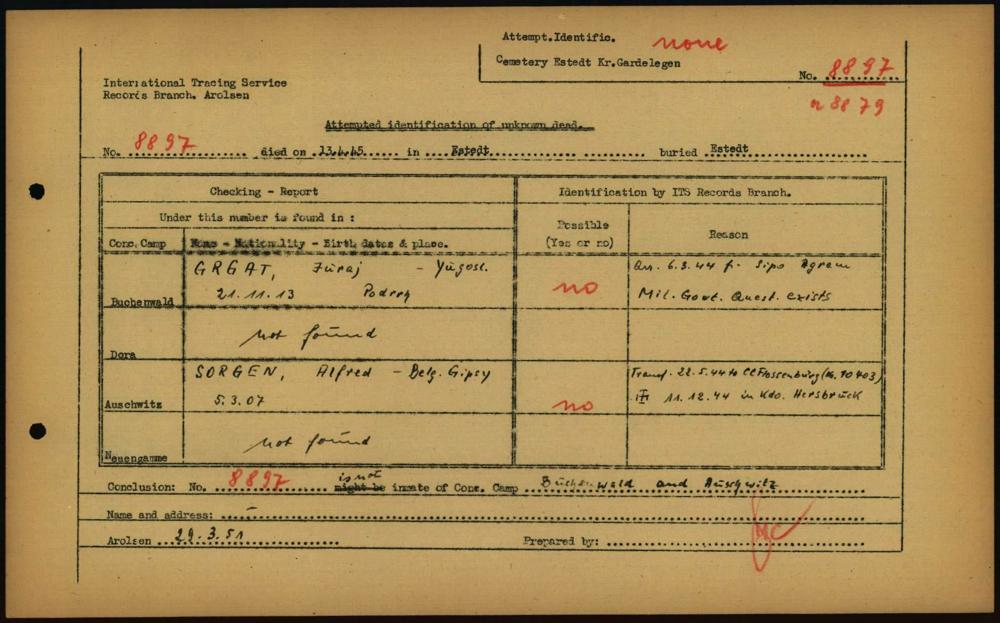 Attempt.Identific. none
Cemetery Estedt Kr.Gardelegen
No. 8897
International Tracing Service
Records Branch. Arolsen
n 8879
Attempted identification of unknown dead.
No. 8897 died on 13.4.45 in Estedt buried Estedt
Checking - Report
Identification by ITS Records Branch.
Under this number is found in :
Possible
(Yes or no)
Reason
Conc. Camp
Name - Nationality - Birth dates & place.
GRGAT, Juraj - Yugosl.
Arr. 6.3.44 fr. Sipo Agram
21.11.13
no
Mil. Govt. Quest. exists
Buchenwald
not found
Dora
SORGEN, Alfred - Belg. Gipsy
Transf. 22.5.44 to CC Flossenbürg (No. 10403)
Auschwitz
5.3.07
no
11.12.44 in Kdo. Hersbruck
not found
Neuengamme
Conclusion: No. 8897 is not might be inmate of Conc. Camp Buchenwald and Auschwitz
Name and address: -
Arolsen 29.3.51 Prepared by: